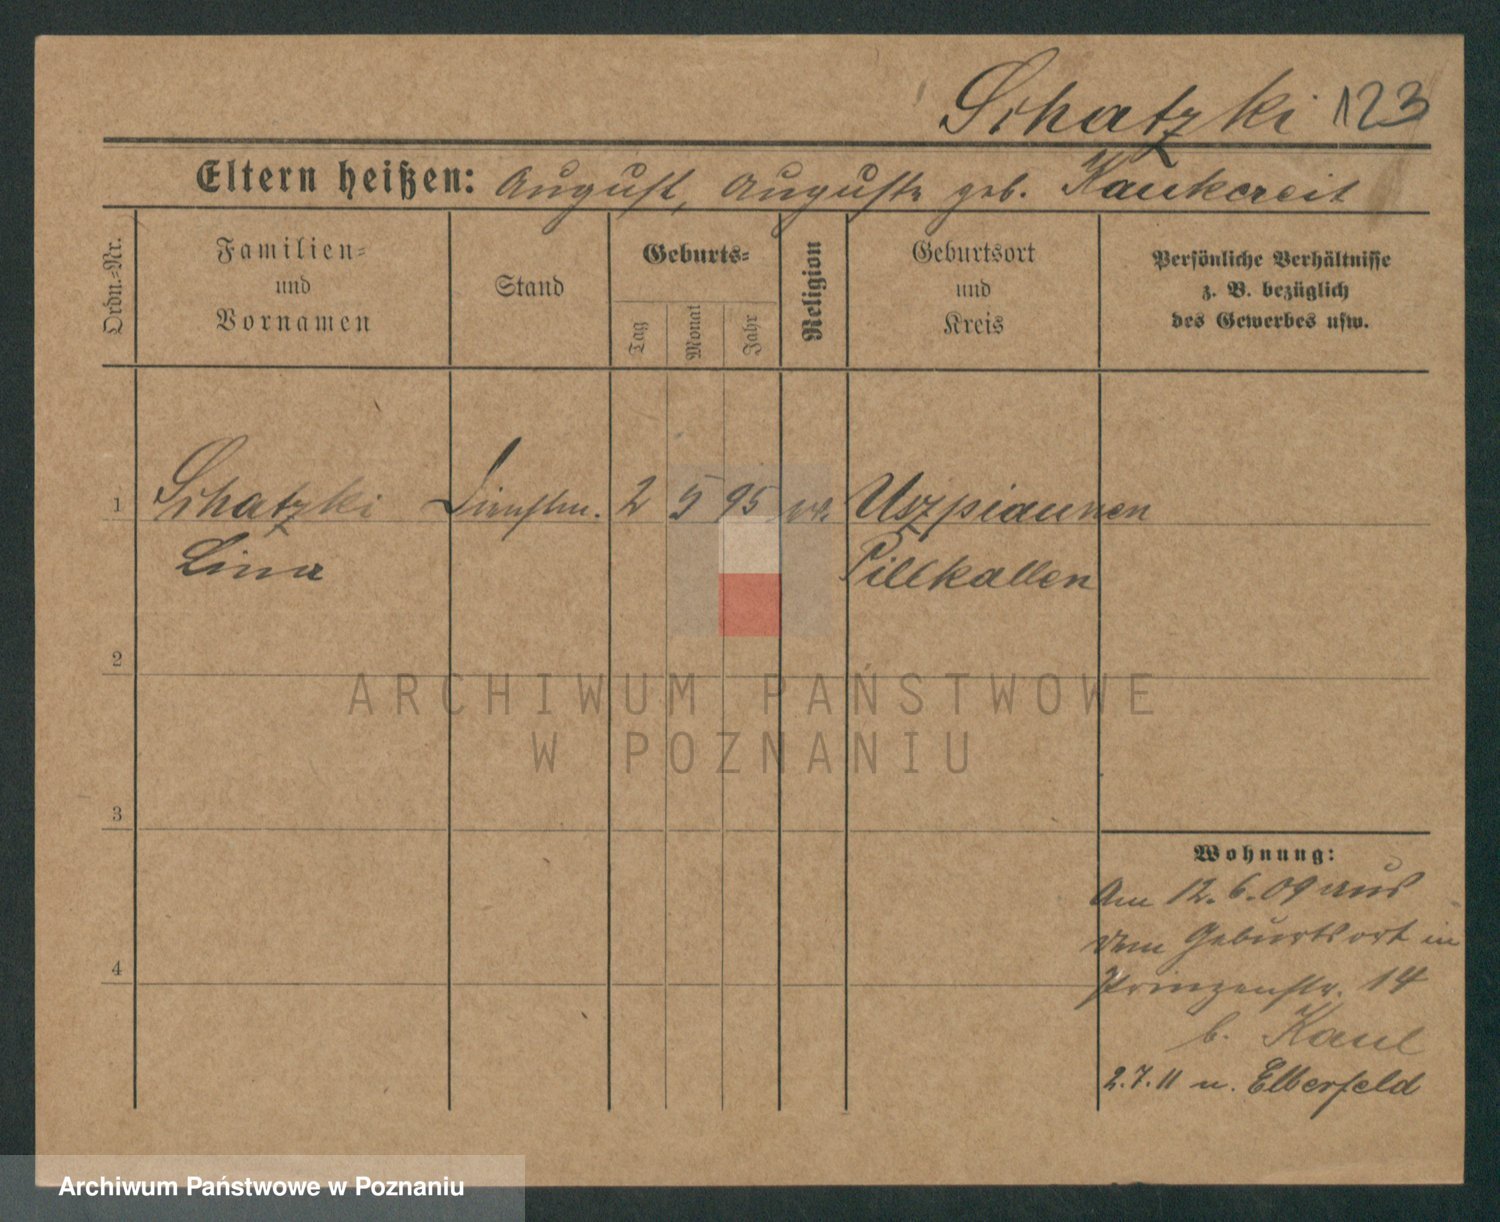 Schatzki 123
Eltern heißen: August, Auguste geb. Kaukereit
Ordn.-Nr.
Familien-
und
Vornamen
Stand
Geburts-
Tag
Monat
Jahr
Religion
Geburtsort
und
Kreis
Persönliche Verhältnisse
z. B. bezüglich
des Gewerbes usw.
1 Schatzki Dienstm. 2 5 95 ev. Uszpiaunen
Lina Pillkallen
2
3
4
Wohnung:
Am 12.6.09 aus
dem Geburtsort in
Prinzenstr. 14
b. Kaul
2.7.11 n. Elberfeld
ARCHIWUM PAŃSTWOWE
W POZNANIU
Archiwum Państwowe w Poznaniu